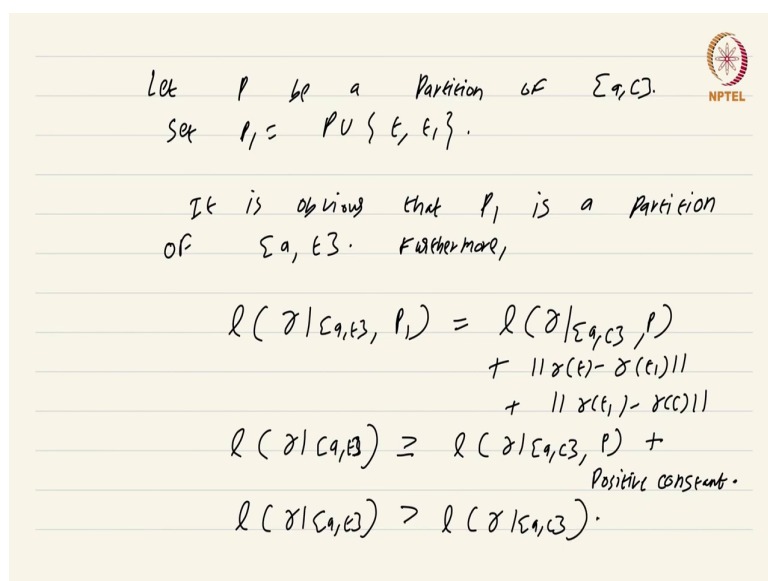 Let P be a Partition of [a,c].
NPTEL
Set P₁ = P ∪ { t, t₁}.
It is obvious that P₁ is a partition
of [a, t]. Furthermore,
l(γ|[a,t], P₁) = l(γ|[a,c], P)
+ ||γ(t)- γ(t₁)||
+ ||γ(t₁)- γ(c)||
l(γ|[a,t]) ≥ l(γ|[a,c], P) +
Positive constant.
l(γ|[a,t]) > l(γ|[a,c]).